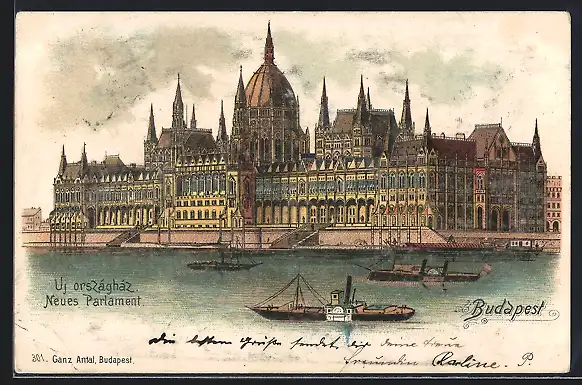 Uj országház.
Neues Parlament.
Budapest
Die besten Grüße sendet dir deine treue
Freundin Karline. P.
301. Ganz Antal, Budapest.